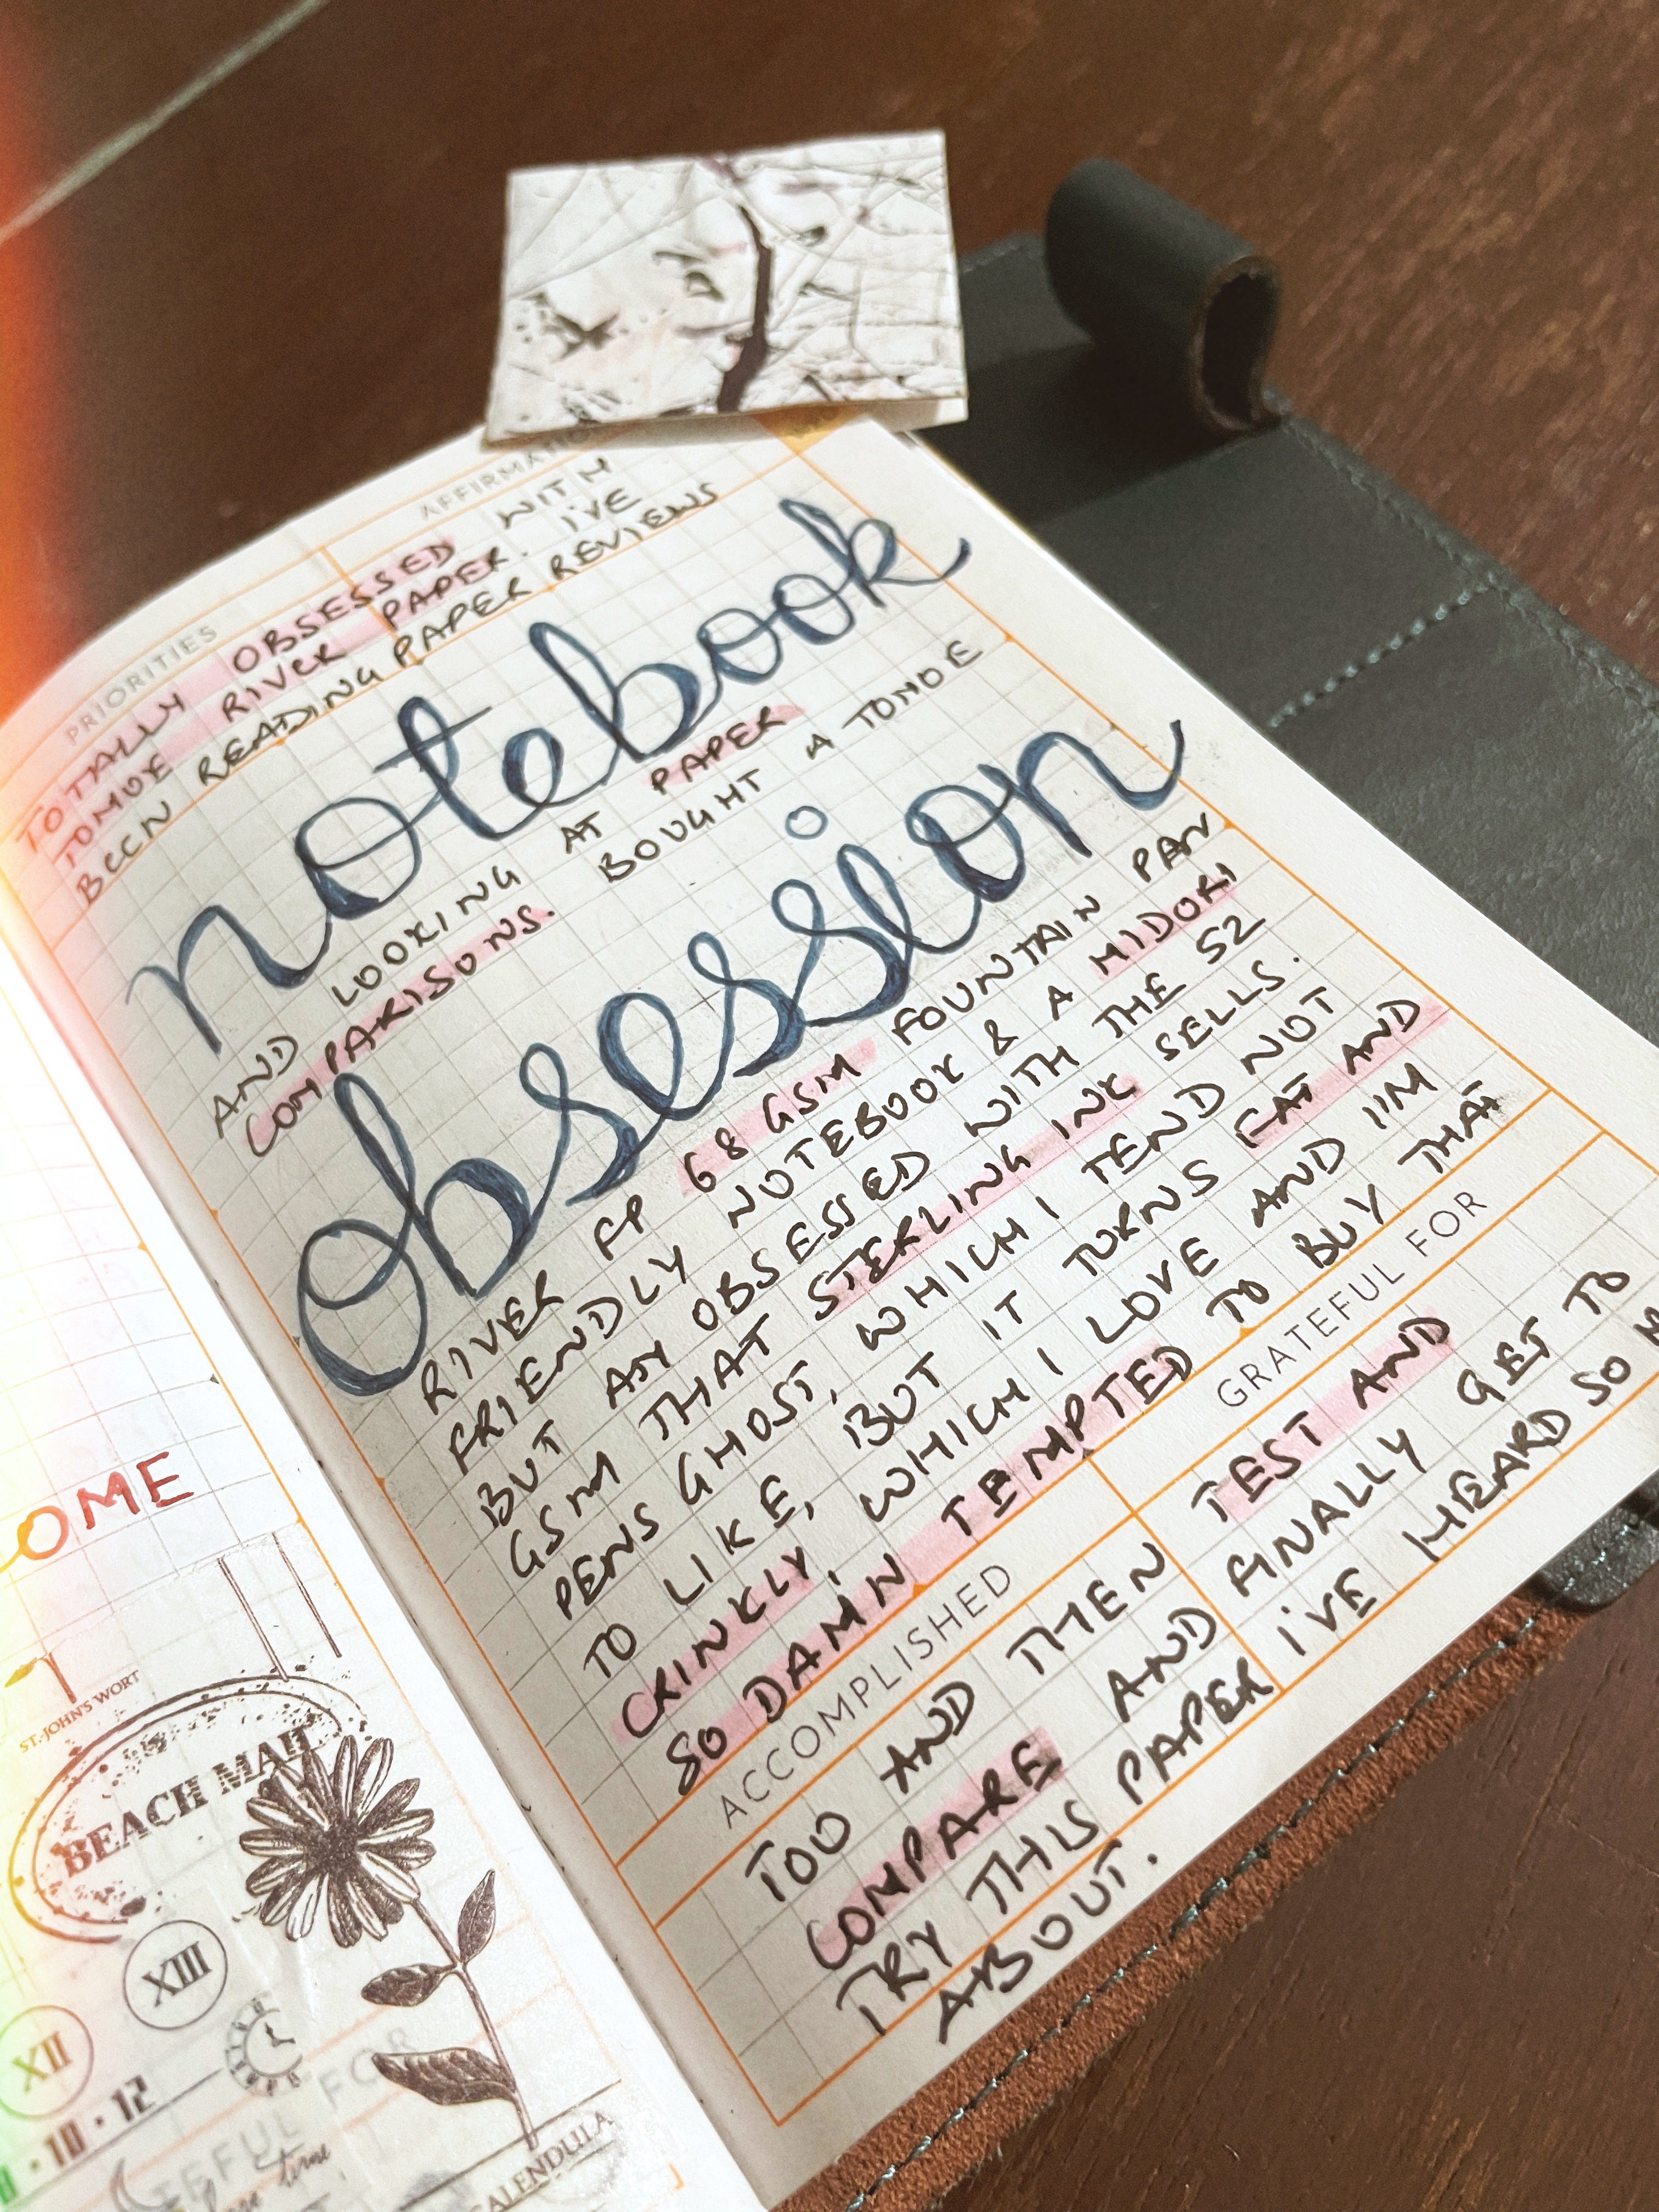 OME
ST. JOHN'S WORT
BEACH MAIL
XIII
XII
10 · 12
EFUL FOR
time
CALENDULA
PRIORITIES
AFFIRMATIO
TOTALLY OBSESSED WITH
TOMOE RIVER PAPER. I'VE
BEEN READING PAPER REVIEWS
notebook
AND LOOKING AT PAPER
COMPARISONS. BOUGHT A TOMOE
obsession
RIVER FP 68 GSM FOUNTAIN PAN
FRIENDLY NOTEBOOK & A MIDORI
BUT AM OBSESSED WITH THE 52
GSM THAT STERLING INK SELLS.
PENS GHOST, WHICH I TEND NOT
TO LIKE, BUT IT TURNS FAT AND
CRINKLY, WHICH I LOVE AND I'M
SO DAMN TEMPTED TO BUY THAT
ACCOMPLISHED
GRATEFUL FOR
TOO AND THEN TEST AND
COMPARE AND FINALLY GET TO
TRY THIS PAPER I'VE HEARD SO M
ABOUT.